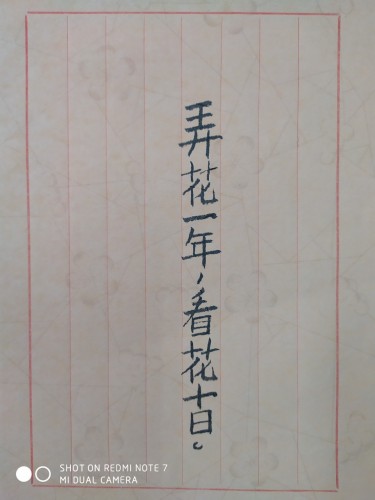 弄花一年，看花十日。
SHOT ON REDMI NOTE 7
MI DUAL CAMERA